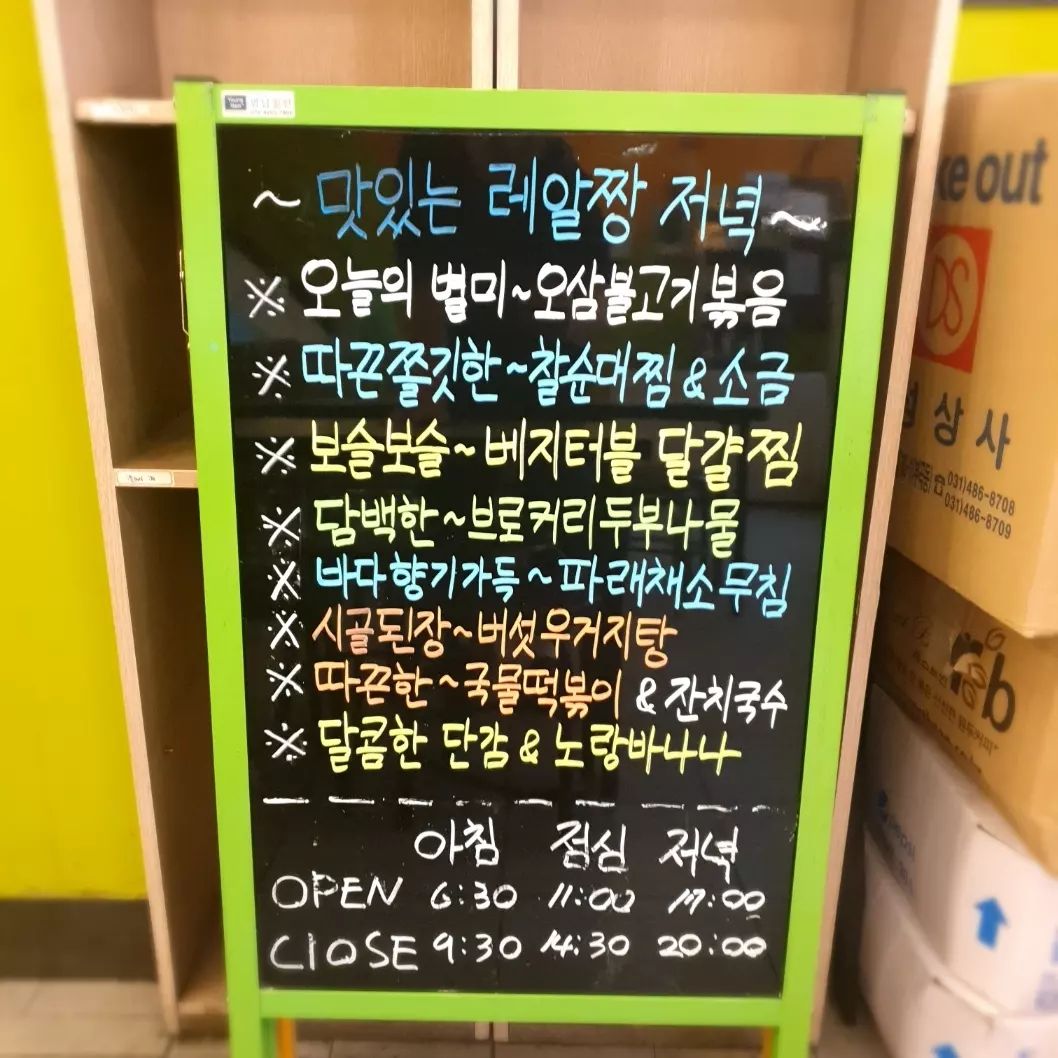 ~ 맛있는 레알짱 저녁 ~
※ 오늘의 별미~오삼불고기볶음
※ 따끈쫄깃한~찰순대찜 & 소금
※ 보슬보슬~베지터블 달걀찜
※ 담백한~브로커리두부나물
※ 바다향기가득~파래채소무침
※ 시골된장~버섯우거지탕
※ 따끈한~국물떡볶이 & 잔치국수
※ 달콤한 단감 & 노랑바나나
아침 점심 저녁
OPEN 6:30 11:00 17:00
ClOSE 9:30 14:30 20:00
ke out
DS
상사
031)486-8708
031)486-8709